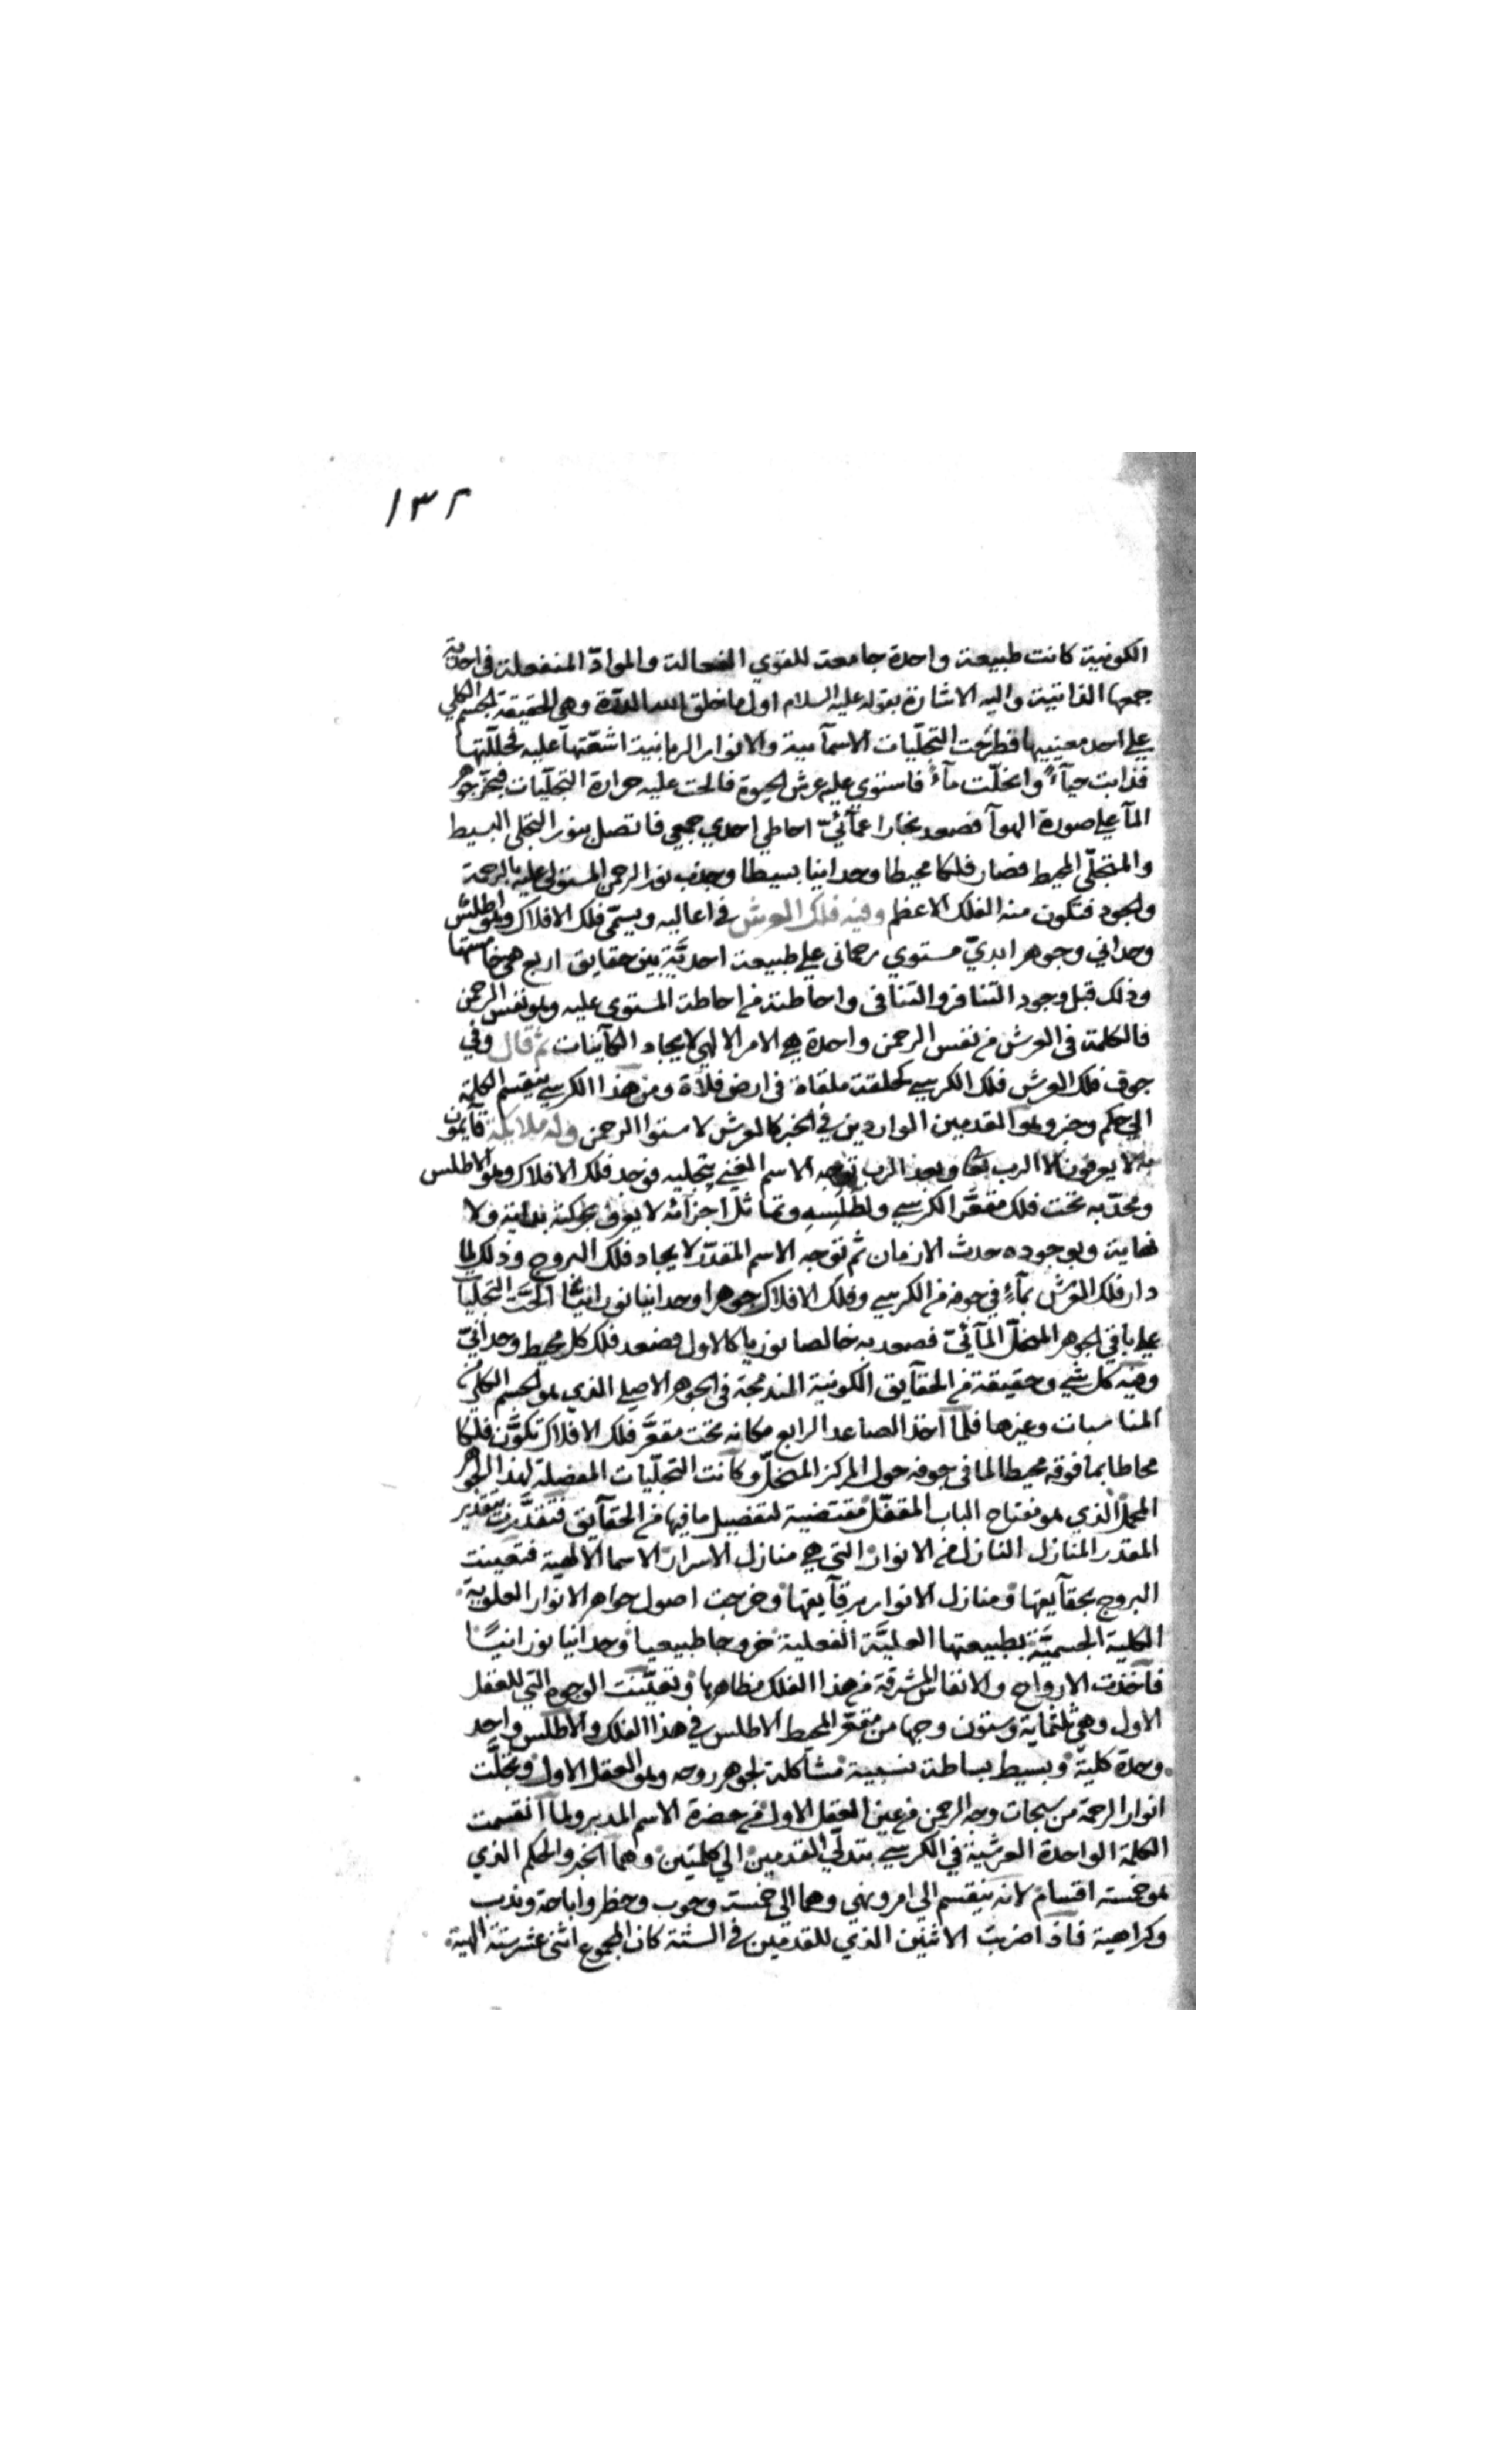 ١٣٢
الكونية كانت طبيعة واحدة جامعة للقوي الفعالة والموادّ المنفعلة في احدية
جمعها الذاتية واليه الاشارة بقوله عليه السلام اول ما خلق الله الدرّة وهي الحقيقة الجسم الكلي
علي احد معنييها فطرحت التجلّيات الاسمآمية والانوار الرحمانية اشعّتها عليه فحللتها
فذابت حيآءً وانحلّت مآءً فاستوي عليه عرش الحيوة فالحت عليه حرارة التجلّيات فتبخّر جوهر
المآ علي صورة الهوآ فصعد بخارا عمآئيّ احاطي احدي جمعي فاتصل بنور التجلي البسيط
والمتجلّي المحيط فصار فلكا محيطا وحدانيا بسيطا وجذب نور الرحمن المستولي عليه بالرحمة
والجود فتكون منه الفلك الاعظم وفيه فلك العرش في اعاليه ويسمّي فلك الافلاك وهو اطلس
وحداني وجوهر ابديّ مستوي رحماني علي طبيعة احديّة بين حقايق اربع هي خامستها
وذلك قبل وجود التنافر والتنافي واحاطته من احاطة المستوي عليه وهو نفس الرحمن
فالكلمة في العرش من نفس الرحمن واحدة هي الامر الالهي لايجاد الكآينات ثم قال وفي
جوف فلك العرش فلك الكرسي كحلقة ملقاة في ارض فلاة ومن هذا الكرسي ينقسم الكلمة
الي حكم وخبر وهو القدمين الواردين في الخبر كالعرش لاستوا الرحمن وله ملايكة قآيمون
به لا يعرفون الا الرب تعا وبعد الرب توجه الاسم الغني بتجليه فوجد فلك الافلاك وهو الاطلس
ومحدّبه تحت فلك مقعّر الكرسي ولطلسه وتماثل اجزآئه لا يعرف لحركته بداية ولا
نهاية وبوجوده حدث الازمان ثم توجه الاسم المقدّر لايجاد فلك البروج وذلك لما
دار فلك العرش بمآءٍ في جوفه من الكرسي وفلك الافلاك جوهرا وحدانيا نورانيّا الحّت التجليات
علي باقي الجوهر المنحلّ المآئيّ فصعد به خالصا نوريا كالاول فصعد فلك كل محيط وحدانيّ
وفيه كل شي وحقيقة من الحقآيق الكونية المندمجة في الجوهر الاصلي الذي هو الجسم الكلي من
المناسبات وغيرها فلمّا اخذ الصاعد الرابع مكانه تحت مقعّر فلك الافلاك تكوّن فلكا
محاطا بما فوقه محيطا لما في جوفه حول المركز المنحلّ وكانت التجلّيات المفصلة لهذا الجوهر
المجمل الذي هو مفتاح الباب المقفّل مقتضية لتفصيل ما فيها من الحقآيق فتقدّرت بتقدير
المقدر المنازل النازل من الانوار التي هي منازل الاسرار الاسما الالهية فتعينت
البروج بحقآيقها ومنازل الانوار برقآيقها وخرجت اصول جواهر الانوار العلوية
الكلية الجسميّة بطبيعتها العليّة الفعلية خروجا طبيعيا وحدانيا نورانيّا
فآخذت الارواح والانفاس المشرقة من هذا الفلك مظاهرها وتعيّنت الوجوه التي للعقل
الاول وهي ثلثماية وستون وجها من مقعّر المحيط الاطلس في هذا الفلك والاطلس واحد
وحدة كليّة وبسيط بساطة نسبية مشاكلة لجوهر روحه وهو العقل الاول وتجلّت
انوار الرحمة من سبحات وجه الرحمن من عين العقل الاول من حضرة الاسم المدبر ولما انقسمت
الكلمة الواحدة العرشية في الكرسي بتدلّي القدمين الي كلمتين وهما الخبر والحكم الذي
هو خمسة اقسام لانه ينقسم الي امر ونهي وهما الي خمسة وجوب وحظر واباحة وندب
وكراهية فاذا ضربت الاثنين الذي للقدمين في الستة كان المجموع اثني عشر ستة الهية